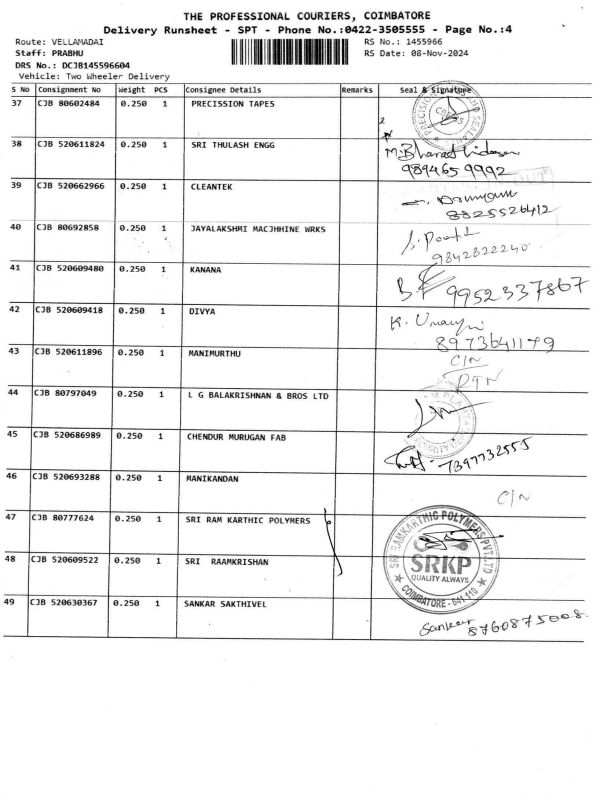 THE PROFESSIONAL COURIERS, COIMBATORE
Delivery Runsheet - SPT - Phone No.:0422-3505555 - Page No.:4
Route: VELLAMADAI RS No.: 1455966
Staff: PRABHU RS Date: 08-Nov-2024
DRS No.: DCJB145596604
Vehicle: Two Wheeler Delivery
S No Consignment No Weight PCS Consignee Details Remarks Seal & Signature
37 CJB 80602484 0.250 1 PRECISSION TAPES
38 CJB 520611824 0.250 1 SRI THULASH ENGG
989465 9992
39 CJB 520662966 0.250 1 CLEANTEK
8825526412
40 CJB 80692858 0.250 1 JAYALAKSHMI MACJHHINE WRKS
9842822240
41 CJB 520609480 0.250 1 KANANA 9952337867
42 CJB 520609418 0.250 1 DIVYA
8973641179
43 CJB 520611896 0.250 1 MANIMURTHU C/N
RTN
44 CJB 80797049 0.250 1 L G BALAKRISHNAN & BROS LTD
45 CJB 520686989 0.250 1 CHENDUR MURUGAN FAB 7397732555
46 CJB 520693288 0.250 1 MANIKANDAN C/N
47 CJB 80777624 0.250 1 SRI RAM KARTHIC POLYMERS
SRI RAMKARTHIC POLYMERS PVT.LTD
SRKP
QUALITY ALWAYS
COIMBATORE - 641 110
48 CJB 520609522 0.250 1 SRI RAAMKRISHAN
49 CJB 520630367 0.250 1 SANKAR SAKTHIVEL
Sankar 8760875008